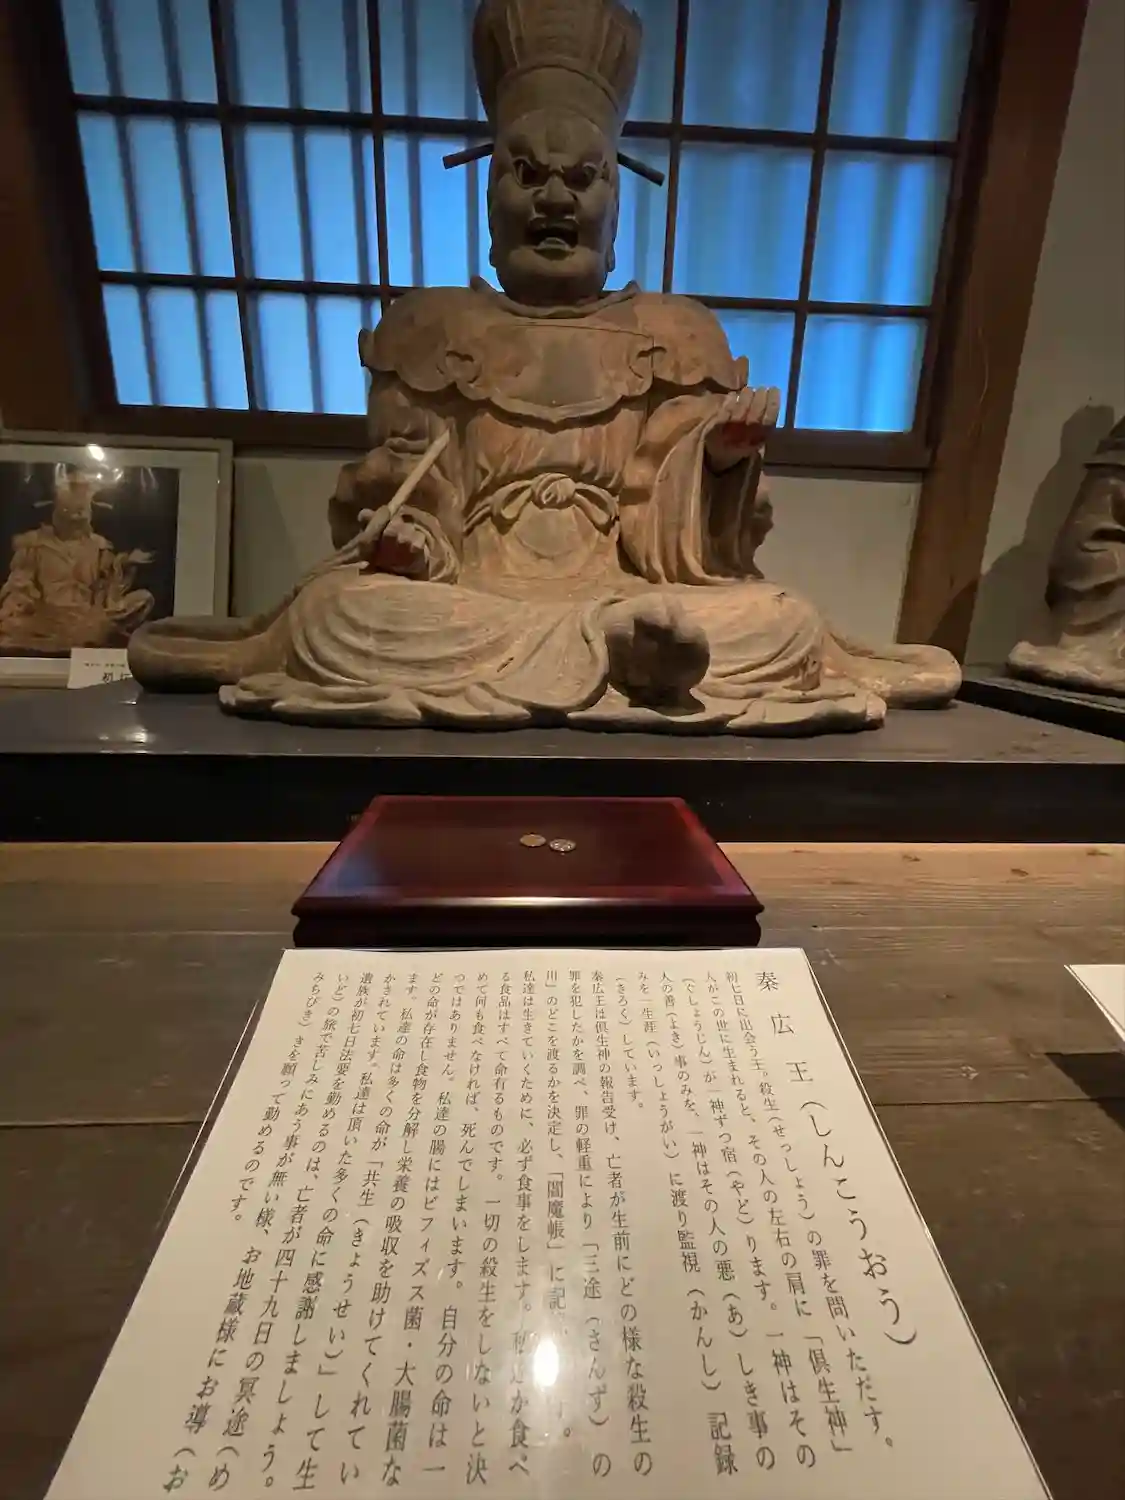 秦広王(しんこうおう)
初七日に出会う王。殺生(せっしょう)の罪を問いただす。
人がこの世に生まれると、その人の左右の肩に「倶生神」
(ぐしょうじん)が一神ずつ宿(やど)ります。一神はその
人の善(よき)事のみを、一神はその人の悪(あ)しき事の
みを一生涯(いっしょうがい)に渡り監視(かんし)記録
(きろく)しています。
秦広王は倶生神の報告受け、亡者が生前にどの様な殺生の
罪を犯したかを調べ、罪の軽重により「三途(さんず)の
川」のどこを渡るかを決定し、「閻魔帳」に記
私達は生きていくために、必ず食事をします。が食べ
る食品はすべて命有るものです。一切の殺生をしないと決
めて何も食べなければ、死んでしまいます。自分の命は一
つではありません。私達の腸にはビフィズス菌・大腸菌な
どの命が存在し食物を分解し栄養の吸収を助けてくれてい
ます。私達の命は多くの命が「共生(きょうせい)」して生
かされています。私達は頂いた多くの命に感謝しましょう。
遺族が初七日法要を勤めるのは、亡者が四十九日の冥途(め
いど)の旅で苦しみにあう事が無い様、お地蔵様にお導(お
みちびき)きを願って勤めるのです。